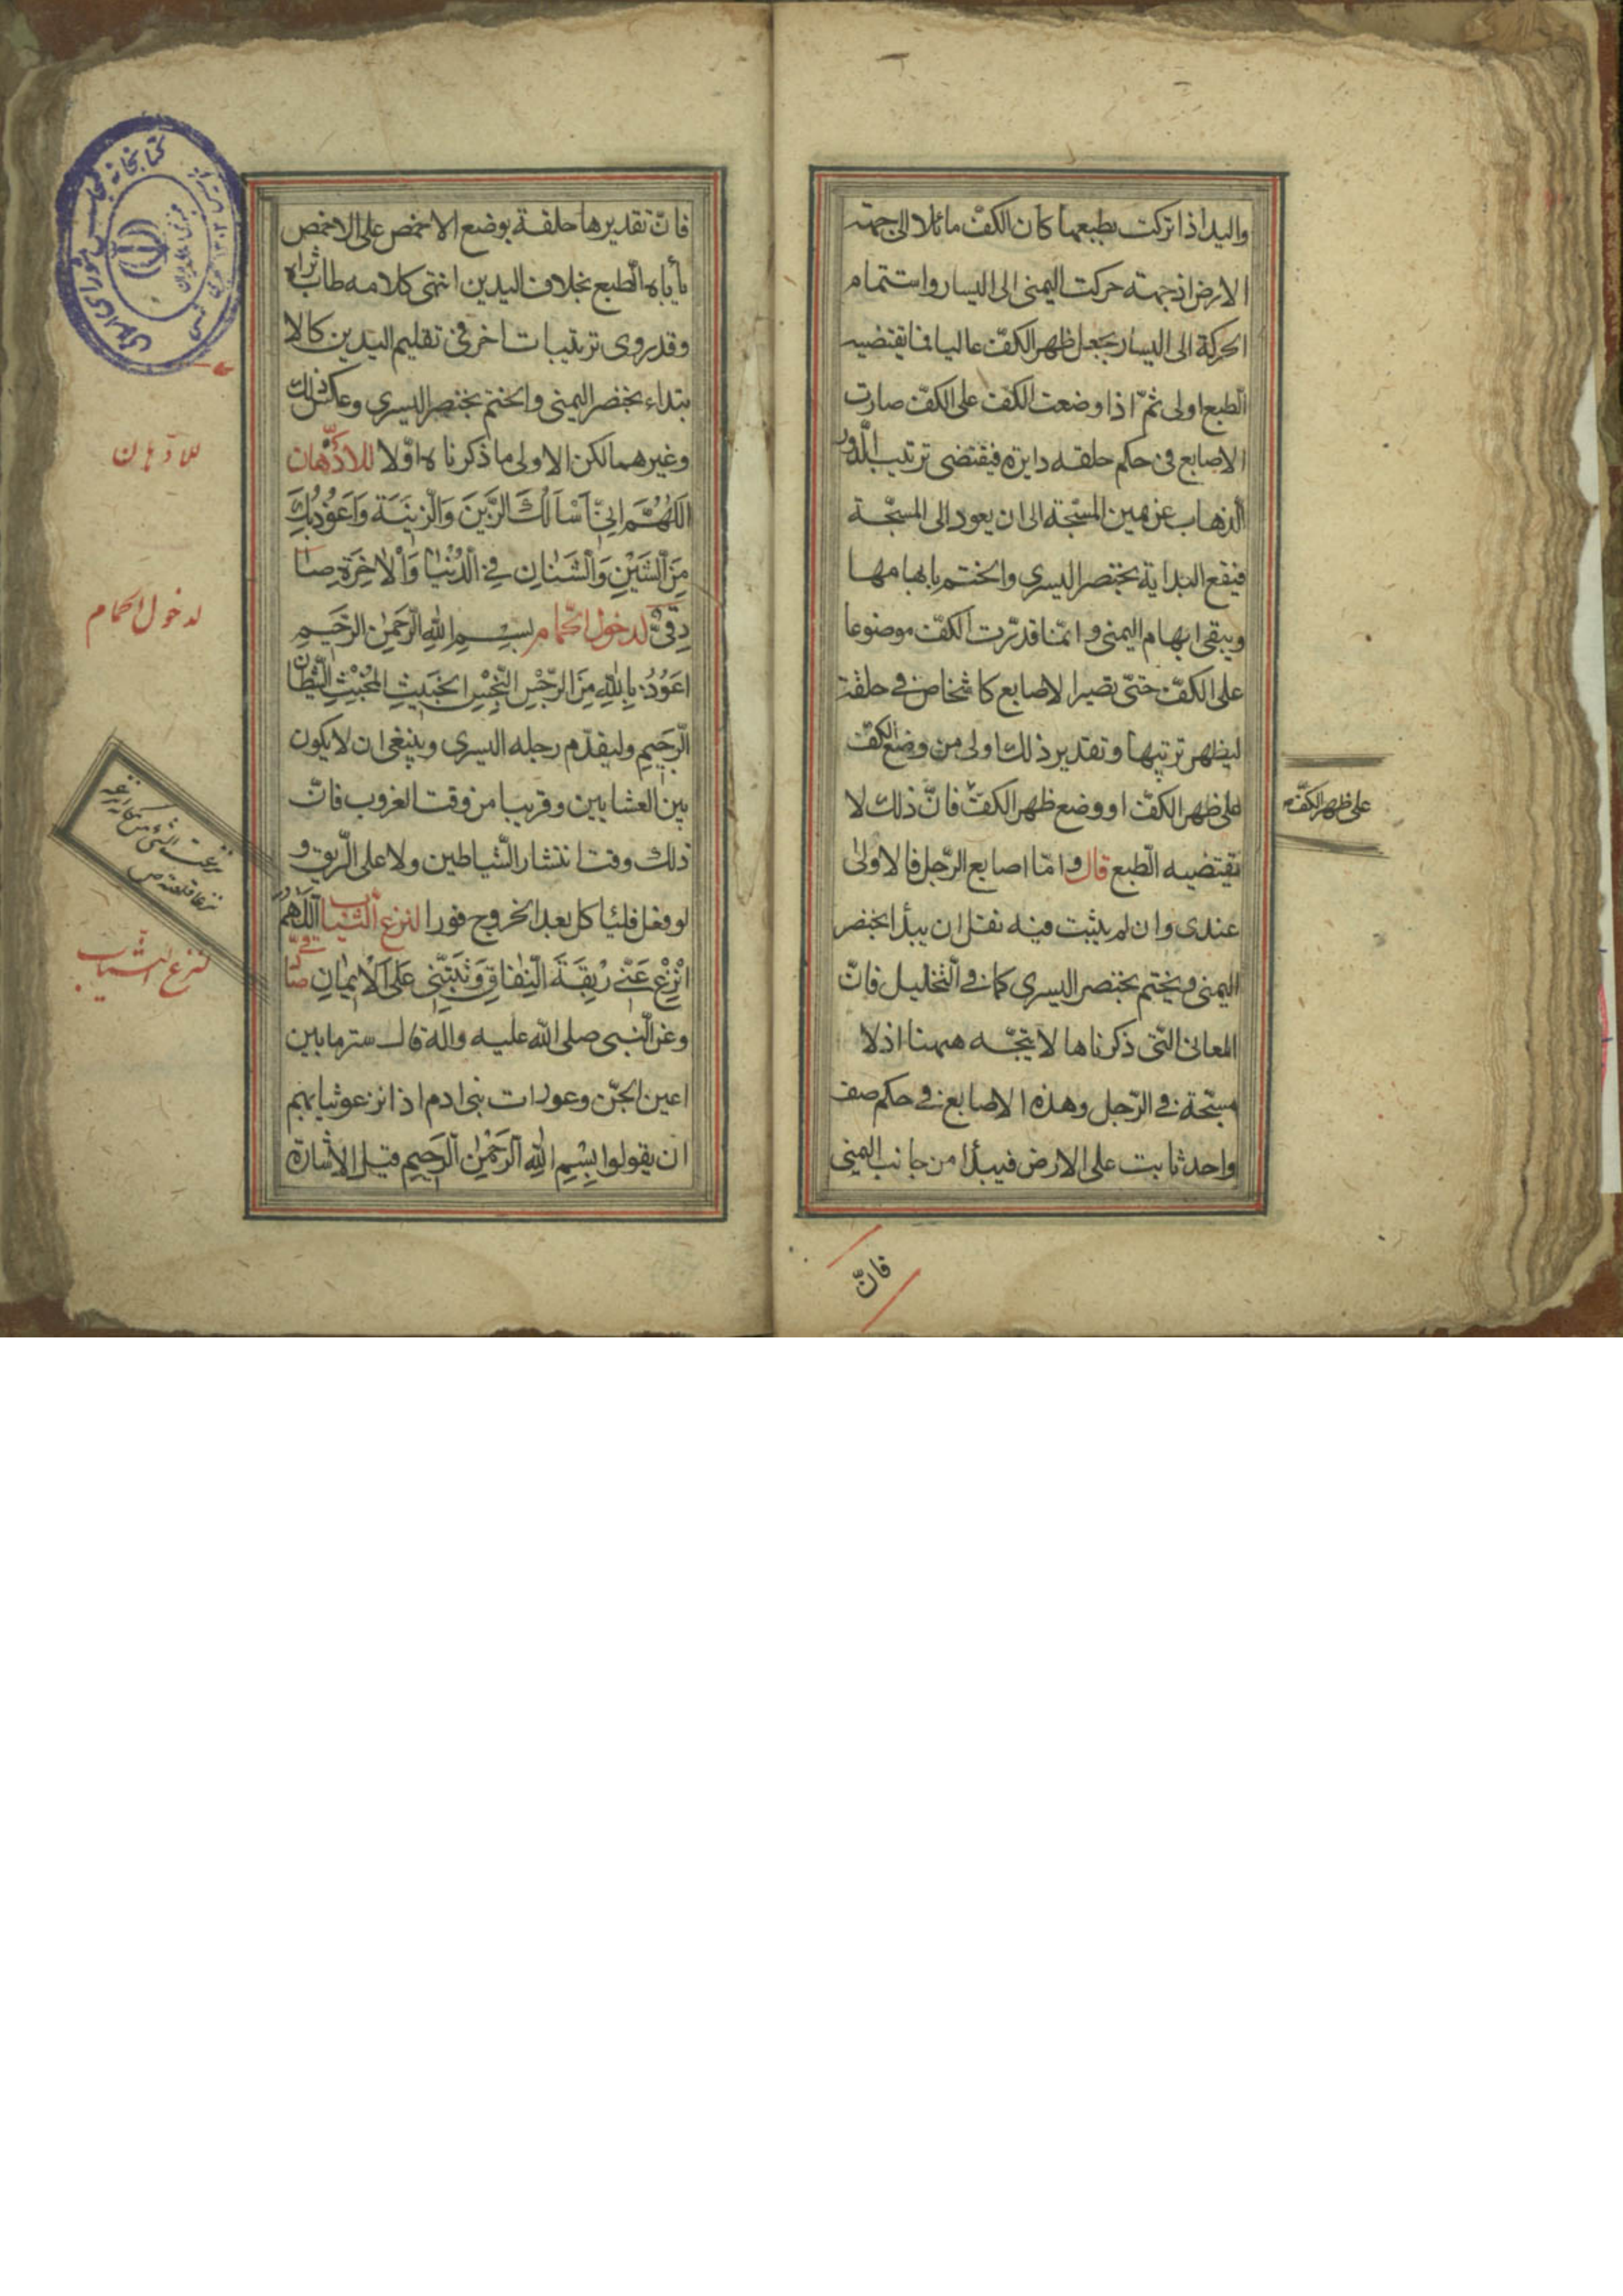 واليد اذا تركت بطبعها كان الكفّ مائلا الى جهته
الارض اذ جهته حركت اليمنى الى اليسار واستتمام
الحركة الى اليسار يجعل ظهر الكفّ عاليا فما يقتضيه
الطّبع اولى ثمّ اذا وضعت الكفّ على الكفّ صارت
الاصابع فى حكم حلقه دايره فيقتضى ترتيب الدّور
الذهاب عن يمين المسبّحة الى ان يعود الى المسبّحة
فيقع البداية بخنصر اليسرى والختم بابهامها
ويبقى ابهام اليمنى وانّما قدّرت الكفّ موضوعا
على الكفّ حتّى تصير الاصابع كاشخاص فى حلقة
ليظهر ترتيبها وتقدير ذلك اولى من وضع الكفّ
على ظهر الكفّ او وضع ظهر الكفّ فانّ ذلك لا
على ظهر الكفّ
يقتضيه الطّبع قال وامّا اصابع الرّجل فالاولى
عندى وان لم يثبت فيه نقل ان يبدأ بخنصر
اليمنى ويختم بخنصر اليسرى كما فى التّخليل فانّ
المعانى التّى ذكرناها لا يتّجه ههنا اذ لا
مسبّحة فى الرّجل وهذه الاصابع فى حكم صف
واحد ثابت على الارض فيبدأ من جانب اليمنى
فانّ
فانّ تقديرها حلقة بوضع الاخمص على الاخمص
يأباه الطّبع بخلاف اليدين انتهى كلامه طاب ثراه
وقد روى ترتيبات اخر فى تقليم اليدين كالا
بتداء بخنصر اليمنى والختم بخنصر اليسرى وعكس ذلك
وغيرهما لكن الاولى ما ذكرناه اوّلا للادّهان
للادّهان
اَللّهُمَّ اِنّى اَسْاَلُكَ الزَّيْنَ وَالزّينَةَ وَاَعُوذُ بِكَ
مِنَ الشَّيْنِ وَالشَّنَانِ فِى الدُّنْيا وَالْاخِرَةِ صا
دقىّ لدخول الحمّام بِسْمِ اللهِ الرَّحْمنِ الرَّحيمِ
لدخول الحمام
اَعُوذُ بِاللهِ مِنَ الرِّجْسِ النَّجِسِ الخَبيثِ المُخْبِثِ الشَّيْطانِ
الرَّجيمِ وليقدّم رجله اليسرى وينبغى ان لا يكون
بين العشايين وقريبا من وقت الغروب فانّ
ذلك وقت انتشار الشّياطين ولا على الرّيق و
لو فعل فلياكل بعد الخروج فورا لنزع الثّياب اَللّهُمَّ
انْزِعْ عَنّى رِبْقَةَ النِّفاقِ وَثَبِّتْنى عَلَى الْايمانِ صا قىّ
لنزع الثّياب
وعن النّبى صلى الله عليه واله قال ستر ما بين
اعين الجنّ وعورات بنى ادم اذا نزعوا ثيابهم
ان يقولوا بِسْمِ اللهِ الرَّحْمنِ الرَّحيمِ قيل الاشارة